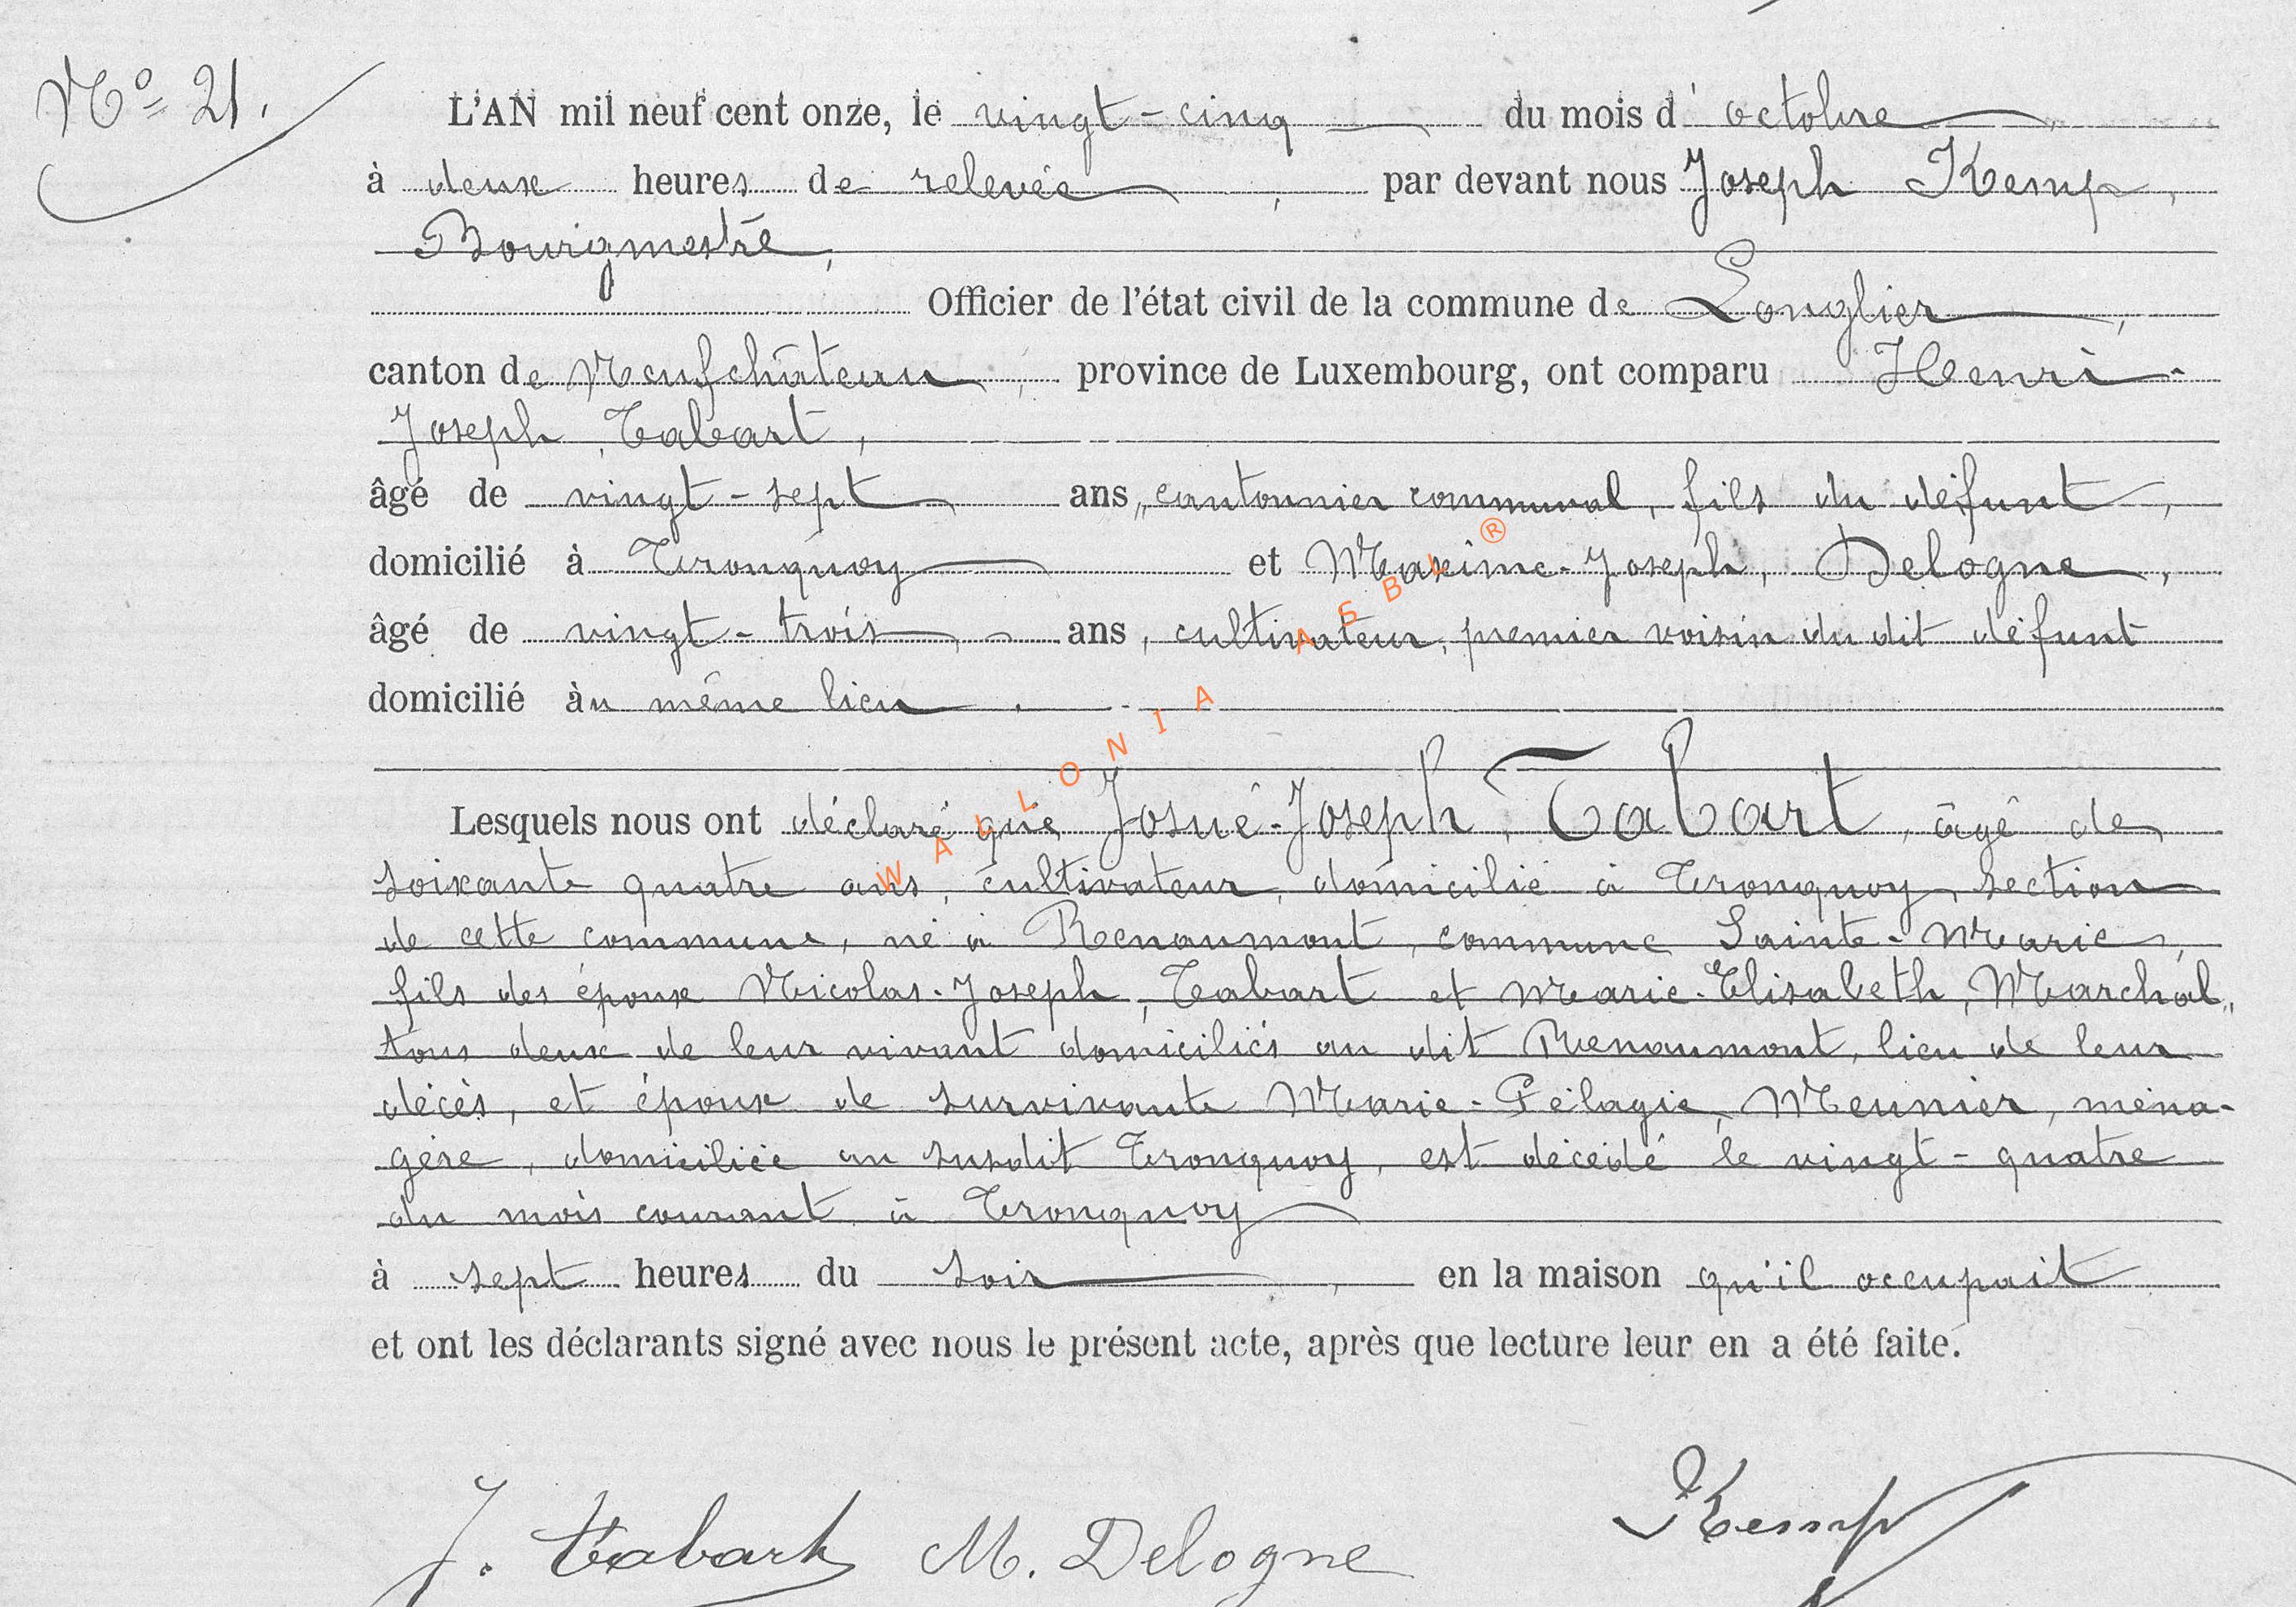 Nº 21.
L'AN mil neuf cent onze, le vingt-cinq du mois d'octobre,
à deux heures de relevée, par devant nous Joseph Kemp,
Bourgmestre,
Officier de l'état civil de la commune de Longlier,
canton de Neufchâteau, province de Luxembourg, ont comparu Henri-
Joseph, Tabart,
âgé de vingt-sept ans, cantonnier communal, fils du défunt,
domicilié à Tronquoy et Maxime-Joseph, Delogne,
âgé de vingt-trois, ans, cultivateur, premier voisin du dit défunt
domicilié àu même lieu.
Lesquels nous ont déclaré que Josué-Joseph, Tabart, âgé de
soixante quatre ans, cultivateur, domicilié à Tronquoy, section
de cette commune, né à Renaumont, commune Sainte-Marie,
fils des époux Nicolas-Joseph, Tabart et Marie-Elisabeth, Marchal,
tous deux de leur vivant domiciliés au dit Renaumont, lieu de leur
décès, et époux de survivante Marie-Pélagie, Meunier, ména-
gère, domiciliée au susdit Tronquoy, est décédé le vingt-quatre
du mois courant à Tronquoy
à sept heures du soir, en la maison qu'il occupait
et ont les déclarants signé avec nous le présent acte, après que lecture leur en a été faite.
J. Tabart M. Delogne Kemp
WALLONIA ASBL ®